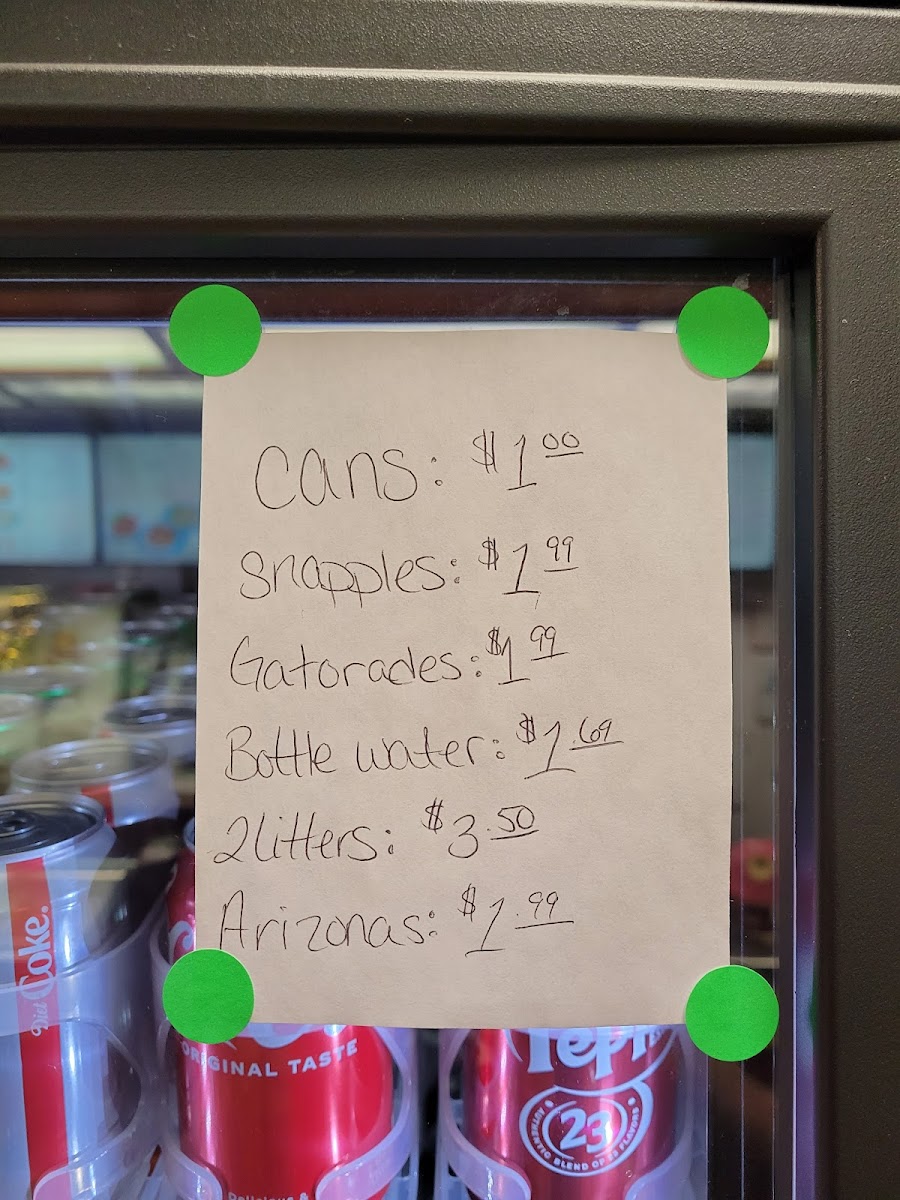 Cans: $1.00
Snapples: $1.99
Gatorades: $1.99
Bottle water: $1.69
2 litters: $3.50
Arizonas: $1.99
Diet Coke.
ORIGINAL TASTE
Delicious &
23
AUTHENTIC BLEND OF 23 FLAVORS